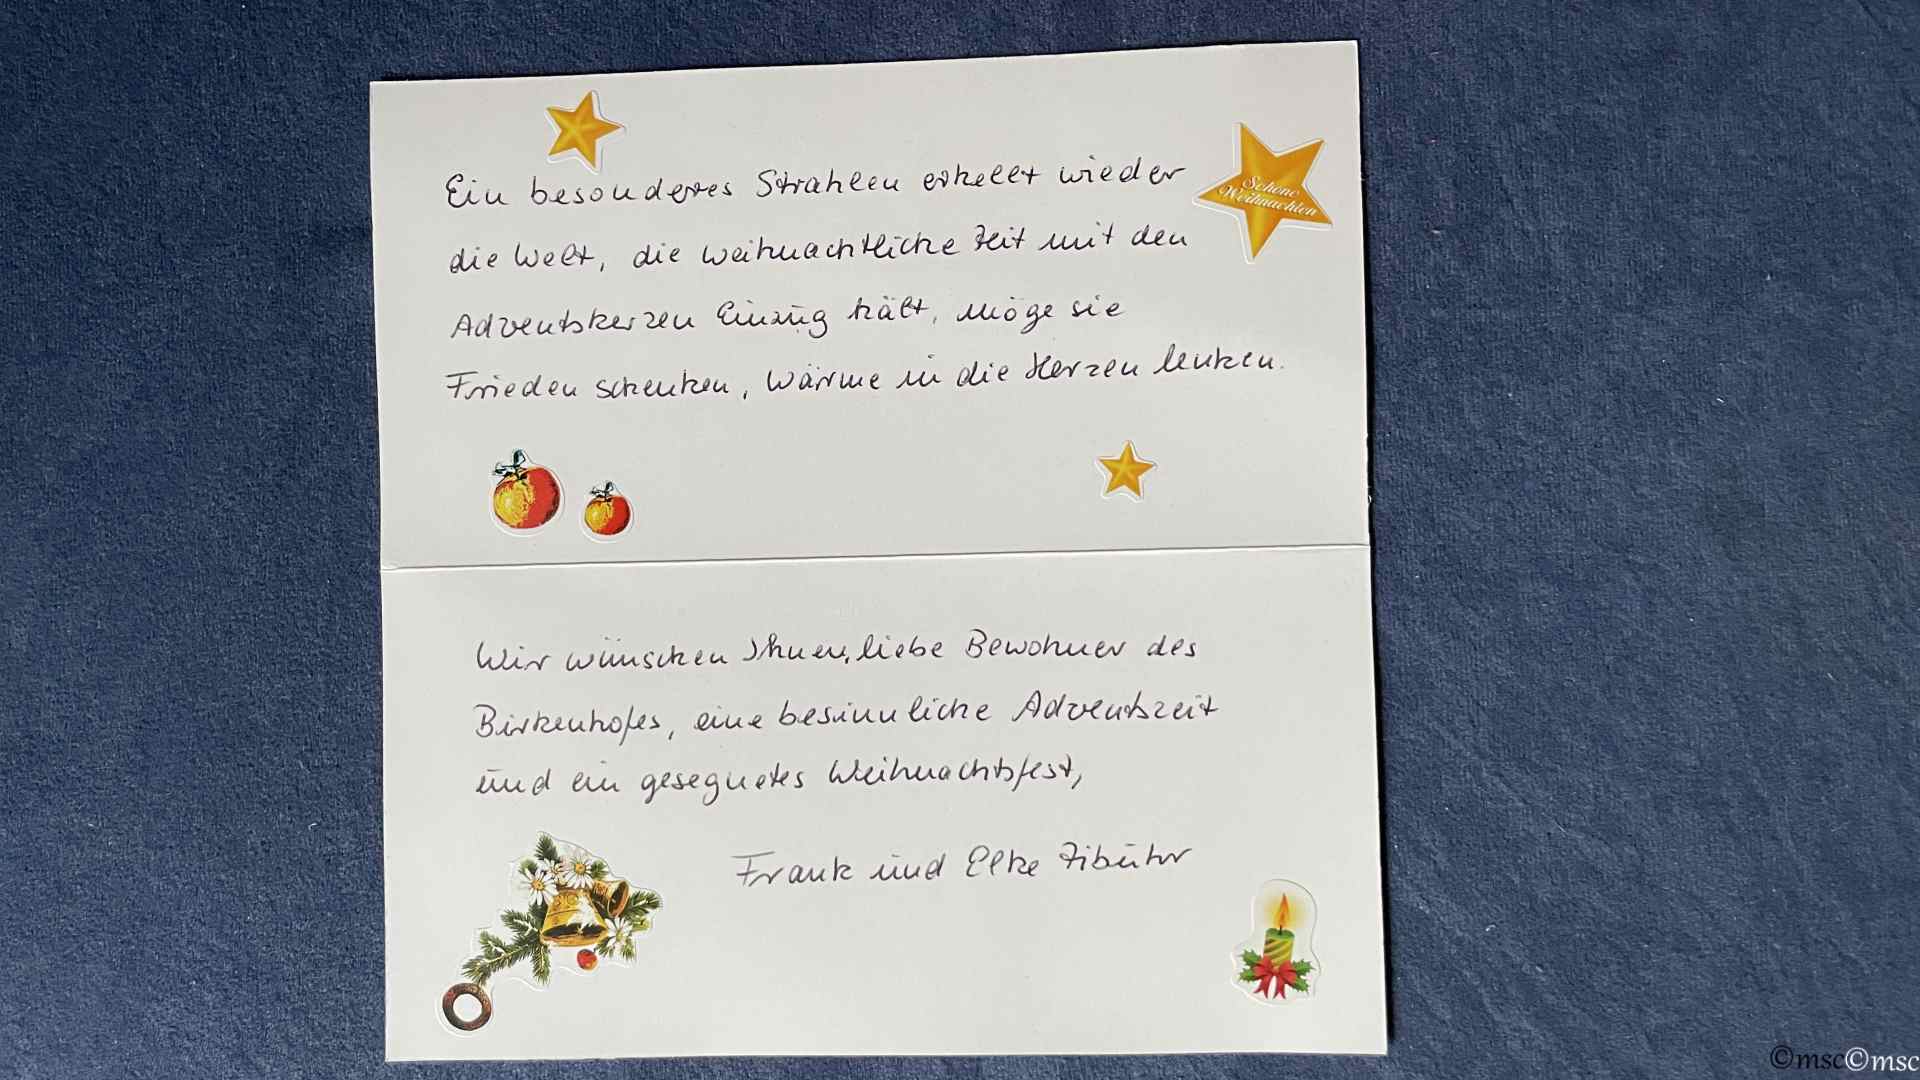 Ein besonderes Strahlen erhellt wieder
Schöne
Weihnachten
die Welt, die weihnachtliche Zeit mit den
Adventskerzen Einzug hält, möge sie
Frieden schenken, Wärme in die Herzen lenken.
Wir wünschen Ihnen, liebe Bewohner des
Birkenhofes, eine besinnliche Adventszeit
und ein gesegnetes Weihnachtsfest,
Frank und Elke
©msc©msc